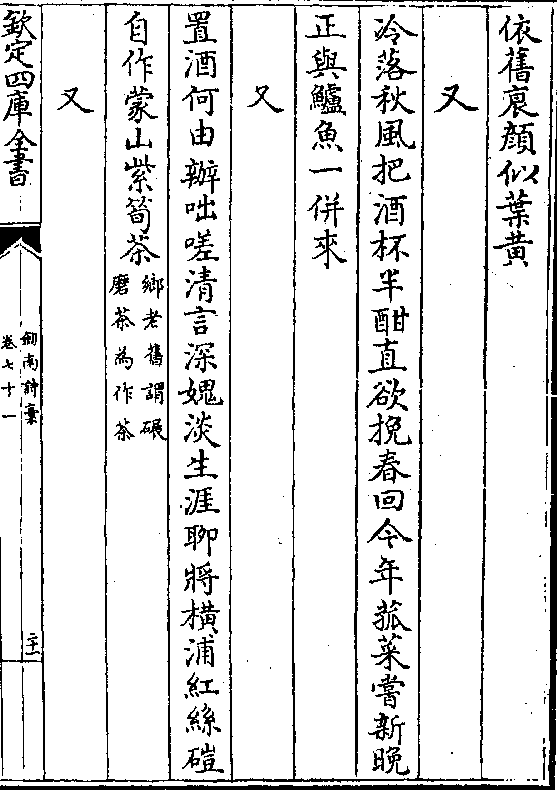 依舊衰顔似葉黃
又
冷落秋風把酒杯半酣直欲挽春回今年菰菜嘗新晚
正與鱸魚一併來
又
置酒何由辦咄嗟清言深媿淡生涯聊將横浦紅絲磑
自作蒙山紫筍茶鄉老舊謂碾
磨茶為作茶
又
欽定四庫全書
劍南詩藁
卷七十一
二十一